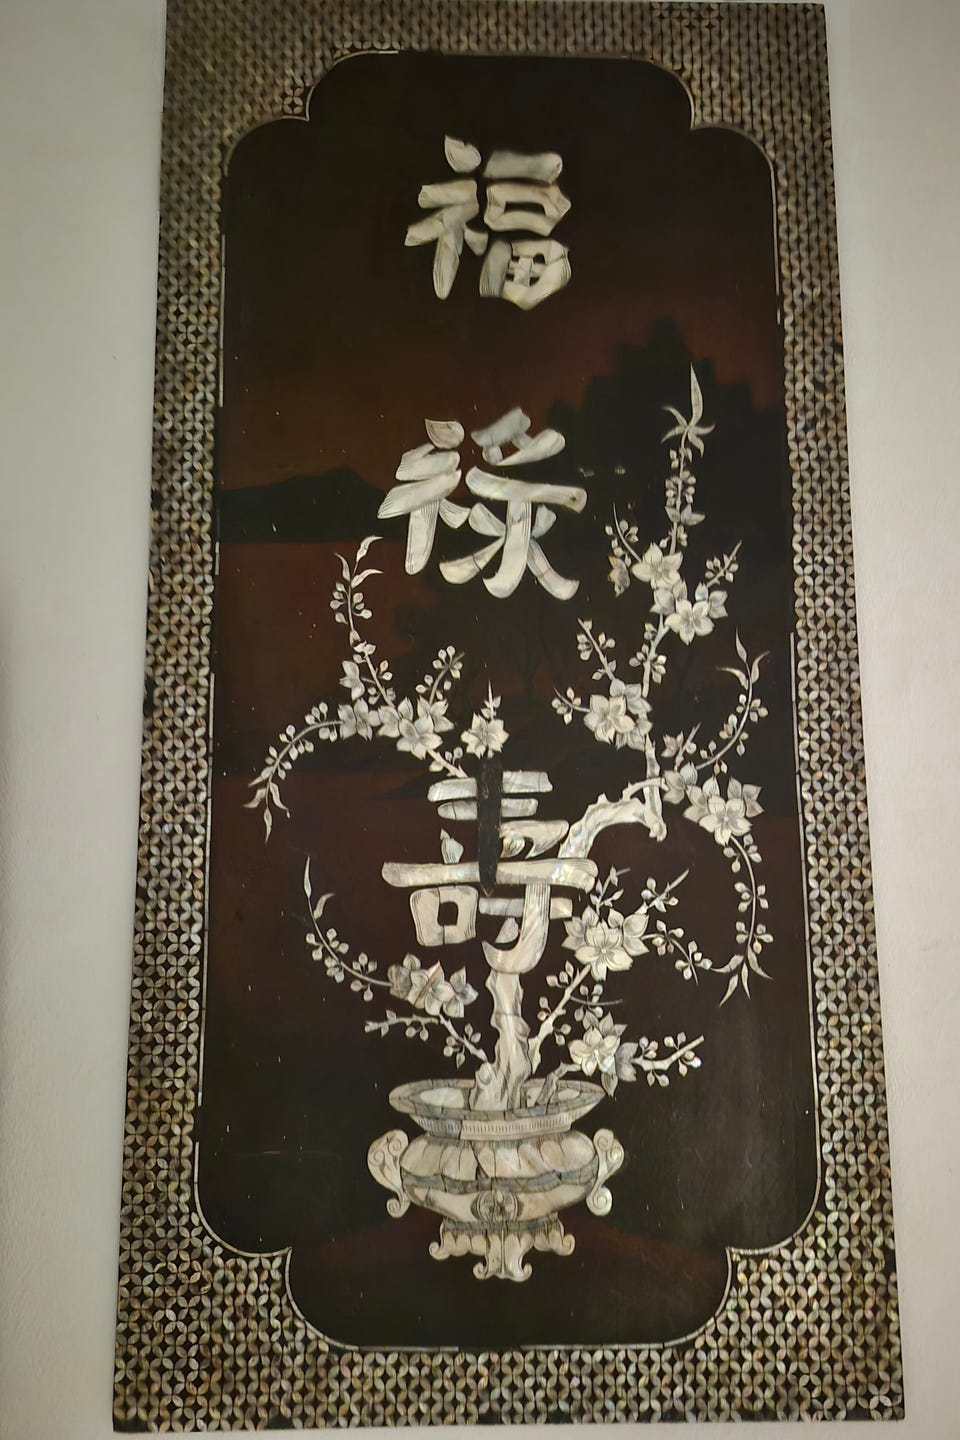 福
祿
壽